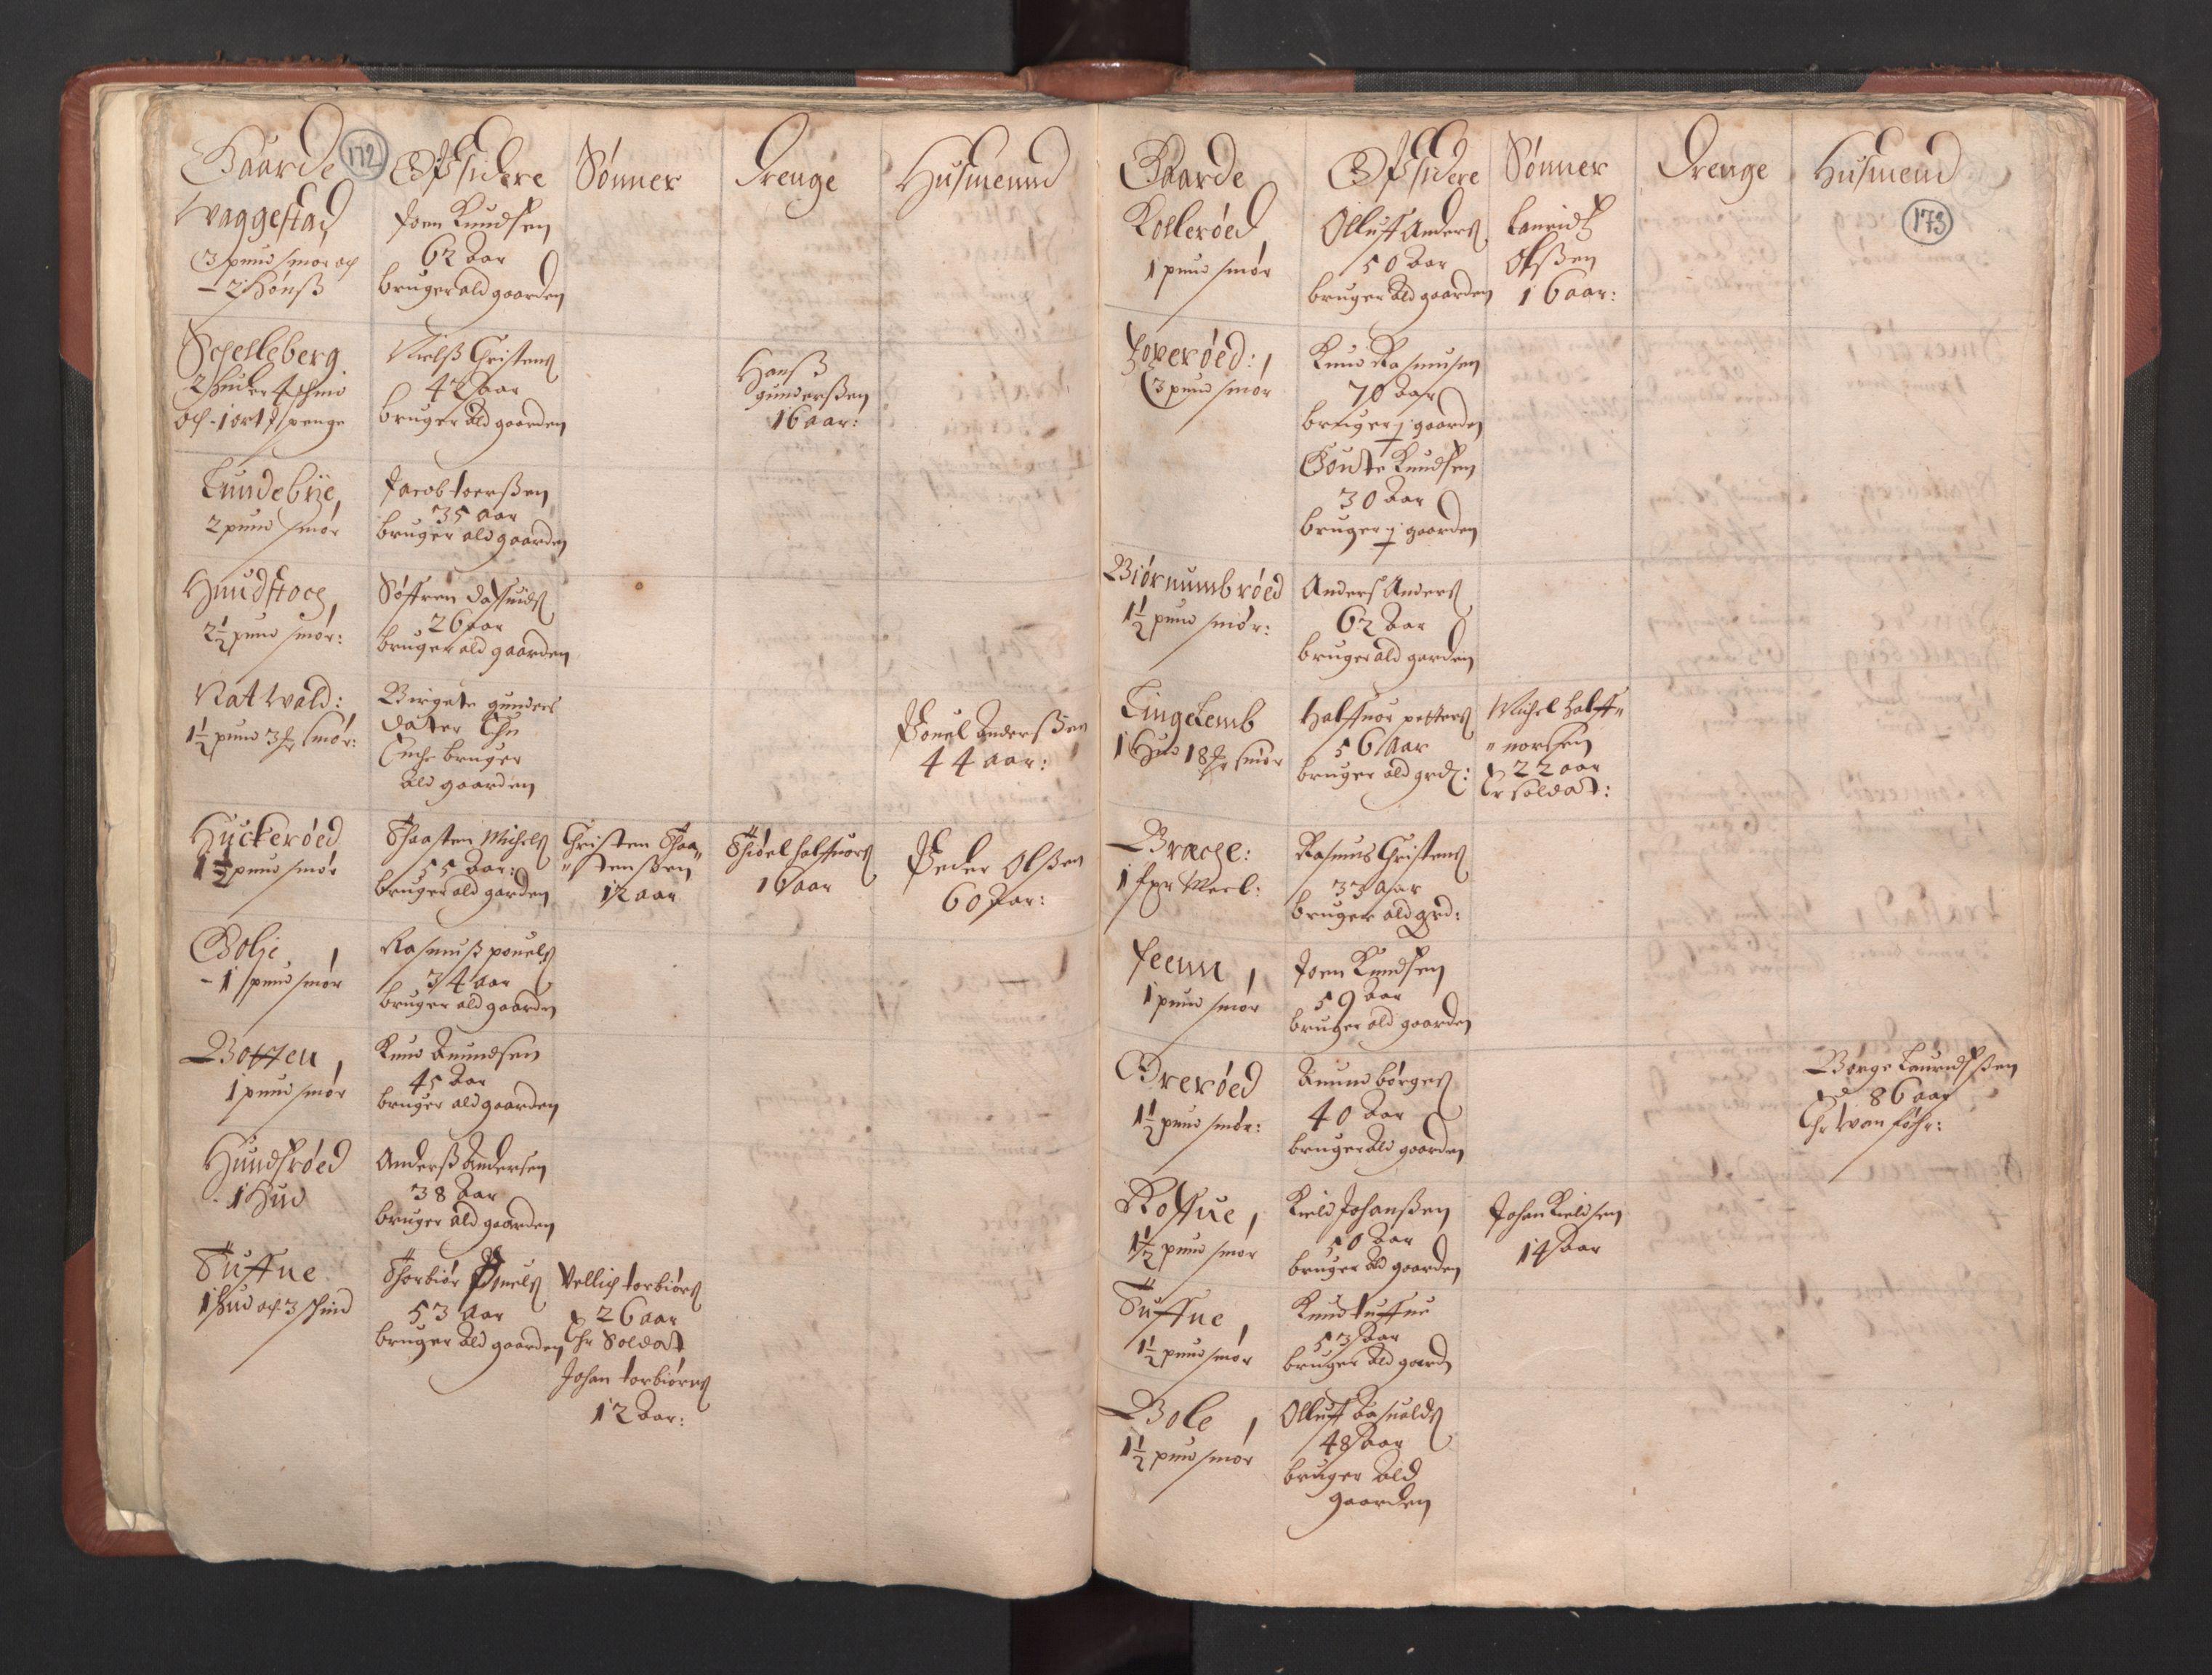 172
Gaarde Opsidere Sønner Drenge Husmennd
Waggestad
3 pund smør och
2 Hønß
Joen Knudsen
62 Aar
bruger ald gaarden
Schelleberg
2 Huder 4 schind
och 1 ort
Nielß Christens
42 Aar
bruger ald gaarden
Hanß
gunderßen
16 aar:
Lundebye,
2 pund smør
Jacob toerßen
35 aar
bruger ald gaarden
Hundstoch,
2½ pund smør:
Søffren
26 aar
bruger ald gaarden
Nattwald:
1½ pund 3 smør:
Birgete gunders
dater Ehn
Enche bruger
ald gaarden
Pouel Anderßen
44 aar:
Hyckerøed
1½ pund smør
Thaasten Michels
55 Aar:
bruger ald garden
Christen Thaa„
„stenßen
12 aar
Thiøel halffuors
16 aar
Peder Olßen
60 Aar:
Bolje,
1 pund smør
Rasmuß pouels
34 aar
bruger ald gaarden
Botten,
1 pund smør
Knud Amundsen
45 Aar
bruger ald gaarden
Hundsrøed
1 Hud
Anderß Andersen
38 Aar
bruger ald gaarden
Tuffue
1 Hud och 3 schind
Thorbiør Pouels
53 Aar
bruger ald gaarden
Vellich torbiørs
26 aar
Ehr Soldat
Johan torbiørns
12 Aar:
173
Gaarde Opsidere Sønner Drenge Husmend
Kollerøed
1 pund smør
Olluff Anders
50 Aar
bruger ald gaarden
Lauridtz
Olßen
16 aar:
3 pund smør
Knud Rasmusen
70 aar
bruger ½ gaarden
Goute Knudsen
30 Aar
bruger ½ gaarden
Biørnumbrøed
1½ pund smør:
Anders Anders
62 Aar
bruger ald garden
Lingelemb
1 Hud 18 smør
Halffuor petters
56 Aar
bruger ald grd:
Michel halff„
„norsen
22 aar
Er soldat:
Brache:
1
Rasmus Christens
33 Aar
bruger ald grd:
Feem,
1 pund smør
Joen Knudsen
59 Aar
bruger ald gaarden
Brerøed
1½ pund smør:
Amund børges
40 Aar
bruger ald gaarden
Børge Lauridsßen
86 aar
Ehr wanføhr:
Roffue,
1½ pund smør
Kield Johanßen
50 Aar
bruger ald gaarden
Johan Kieldsen
14 Aar
Tuffue,
1½ pund smør
Knud tuffue
53 Aar
bruger ald gaard
Bole,
1½ pund smør
Olluff Aasualds
48 Aar
bruger ald
gaarden